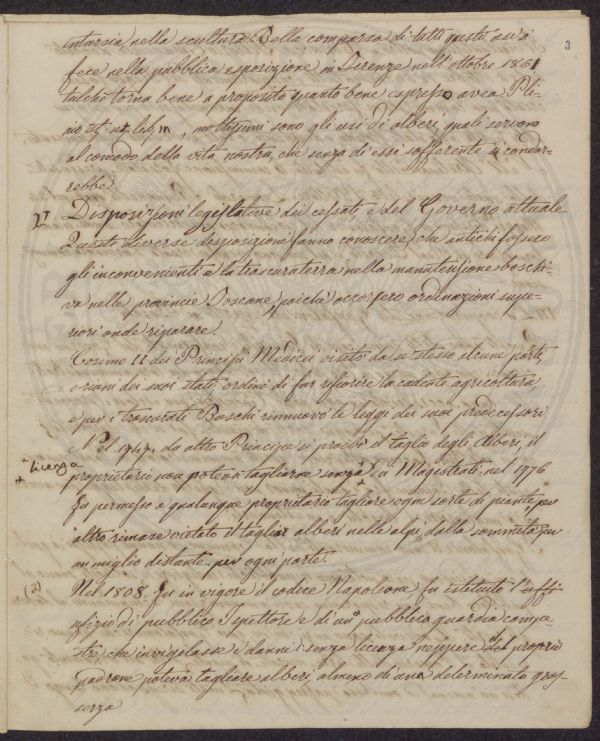 3
intarsia, nella scultura. Bella comparsa di tutti questi usi si
fece nella pubblica esposizione in Firenze nell'ottobre 1861
talché torna bene a proposito quanto bene espresso avea Pli-
nio, moltissimi sono gli usi di alberi, quali servono
al comodo della vita nostra, che senza di essi sofferente si condur-
rebbe
Disposizioni legislative dei cessati e del Governo attuale
Queste diverse disposizioni fanno conoscere, che antichi fossero
gli inconvenienti e la trascuratezza nella manutensione boschi-
va nelle provincie Toscane, poiché occorsero ordinazioni supe-
riori onde riparare.
Cosimo II dei Principi Medicei visitò da se stesso alcune parti,
e rioni dei suoi stati ordinò di far rifiorire la cadente agricoltura
e per i trascurati Boschi rinnuovò le leggi dei suoi predecessori
Nel 1747. da altro Principe si proibì il taglio degli Alberi, il
+ licenza
proprietario non poteva tagliarne senza + dei Magistrati: nel 1776
fu permesso a qualunque proprietario tagliare ogni sorte di piante, per
altro rimase vietato il tagliar alberi nelle alpi, dalla sommità per
un miglio distante per ogni parte.
(2) Nel 1808. fu in vigore il codice Napoleone fu istituito l'uffi
ufizio di pubblico Ispettore e di un pubblico guardia campe-
stre, che invigilasse i danni: senza licenza neppure del proprio
padrone poteva tagliare alberi, almeno di una determinata gros-
sezza